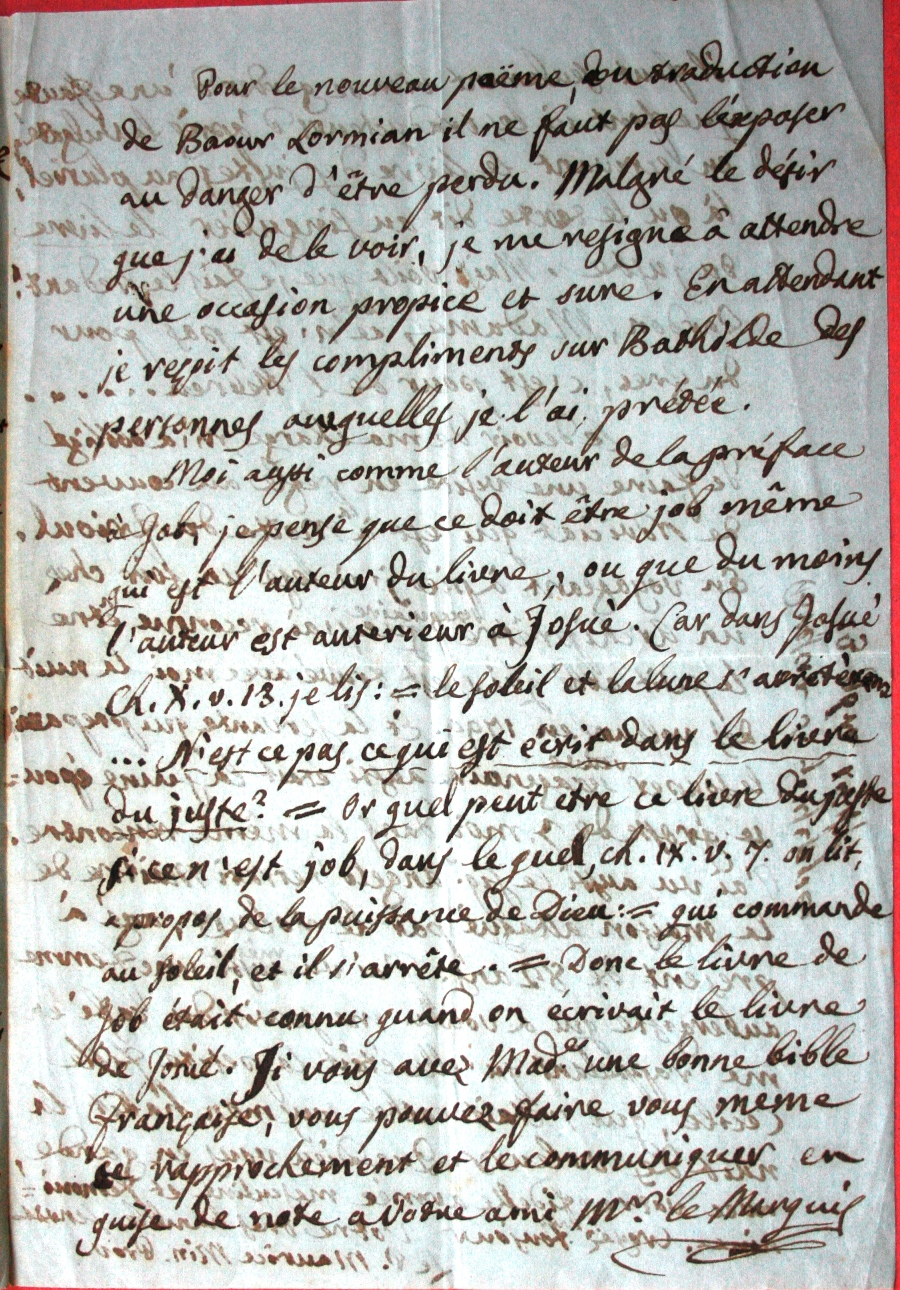 Pour le nouveau poëme, ou traduction
de Baour Lormian il ne faut pas l'exposer
au danger d'être perdu. Malgré le désir
que j'ai de le voir, je me resigne à attendre
une occasion propice et sure. En attendant
je reçoit les compliments sur Bathilde des
personnes auxquelles je l'ai prétée.
Moi aussi comme l'auteur de la préface
à Job, je pense que ce doit être job même
qui est l'auteur du livre, ou que du moins
l'auteur est anterieur à Josué. Car dans Josué
Ch. X. v. 13. je lis: = le soleil et la lune s'arrêtèrent
... N'est ce pas ce qui est ecrit dans le livre
du juste? = Or quel peut etre ce livre du juste
si ce n'est job, dans lequel, ch. IX. v. 7. on lit,
à propos de la puissance de Dieu: = qui commande
au soleil, et il s'arrête. = Donc le livre de
Job était connu quand on écrivait le livre
de Josué. Si vous avez Made. une bonne bible
française, vous pouvez faire vous meme
ce rapprochement et le communiquer en
guise de note à votre ami Mr. le Marquis